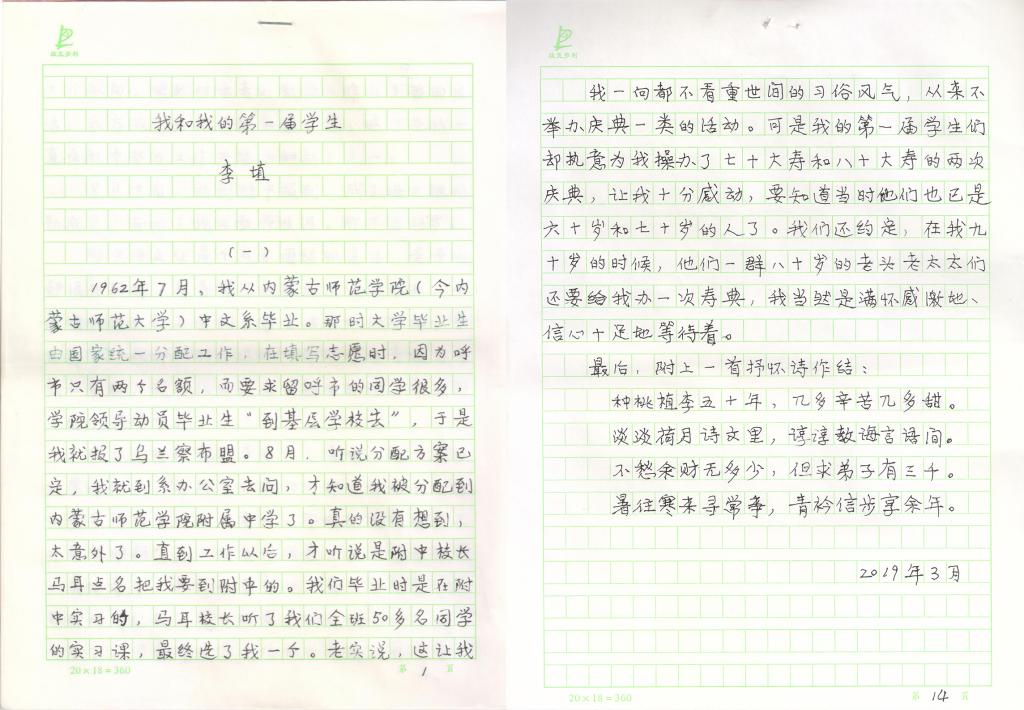 我和我的第一届学生
李 埴
（一）
1962年7月、我从内蒙古师范学院（今内
蒙古师范大学）中文系毕业。那时大学毕业生
由国家统一分配工作，在填写志愿时，因为呼
市只有两个名额，而要求留呼市的同学很多，
学院领导动员毕业生“到基层学校去”，于是
我就报了乌兰察布盟。8月，听说分配方案已
定，我就到系办公室去问，才知道我被分配到
内蒙古师范学院附属中学了。真的没有想到，
太意外了。直到工作以后，才听说是附中校长
马耳点名把我要到附中的。我们毕业时是在附
中实习的，马耳校长听了我们全班50多名同学
的实习课，最终选了我一个。老实说，这让我
20×18=360
第 1 页
我一向都不看重世间的习俗风气，从来不
举办庆典一类的活动。可是我的第一届学生们
却执意为我操办了七十大寿和八十大寿的两次
庆典，让我十分感动，要知道当时他们也已是
六十岁和七十岁的人了。我们还约定，在我九
十岁的时候，他们一群八十岁的老头老太太们
还要给我办一次寿典，我当然是满怀感激地、
信心十足地等待着。
最后，附上一首抒怀诗作结：
种桃植李五十年，几多辛苦几多甜。
淡淡荷月诗文里，谆谆教诲言语间。
不愁余财无多少，但求弟子有三千。
暑往寒来寻常事，青衿信步享余年。
2019年3月
20×18=360
第 14 页